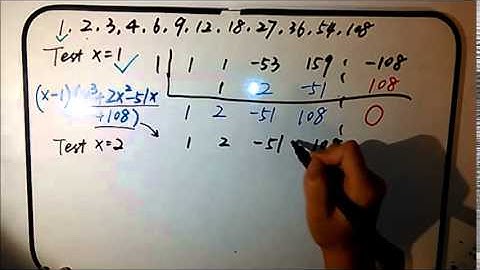 1, 2, 3, 4, 6, 9, 12, 18, 27, 36, 54, 108
Test x=1 ✓ 1 | 1 1 -53 159 -108
1 2 -51 108
(x-1)(x³+2x²-51x
+108) 1 2 -51 108 0
Test x=2 1 2 -51